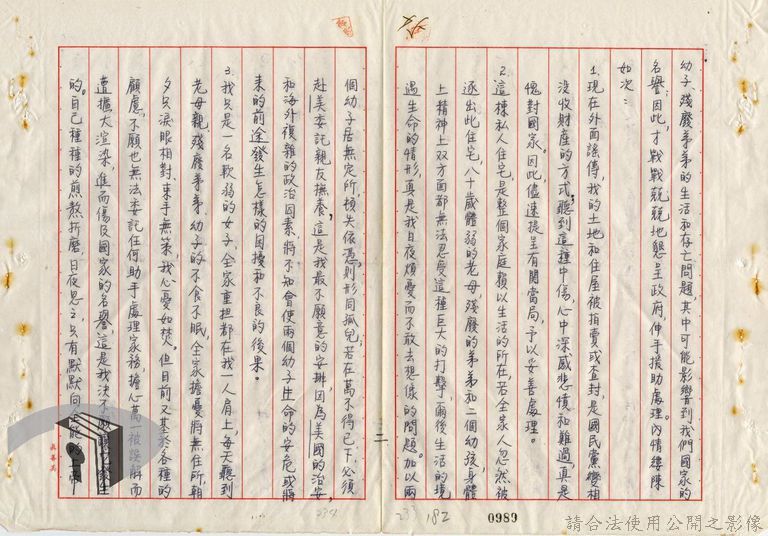 幼子、殘廢弟弟的生活和存亡問題，其中可能影響到我們國家的
名譽，因此，才戰戰兢兢地懇呈政府，伸手援助處理。內情縷陳
如次：
1.現在外面謠傳，我的土地和住屋被拍賣或查封，是國民黨變相
沒收財產的方式，聽到這種中傷，心中深感悲憤和難過，真是
愧對國家。因此儘速提呈有關當局，予以妥善處理。
2.這棟私人住宅，是整個家庭賴以生活的所在，若全家人忽然被
逐出此住宅，八十歲體弱的老母，殘廢的弟弟和二個幼孩，身體
上精神上双方面都無法忍受這種巨大的打擊，爾後生活的境
遇生命的情形，真是我日夜煩憂而不敢去想像的問題。加以兩
個幼子居無定所，頓失依憑，則形同孤兒；若在萬不得已下，必須
赴美委託親友撫養，這是我最不願意的安排，因為美國的治安，
和海外複雜的政治因素，將不知會使兩個幼子生命的安危或將
來的前途發生怎樣的困擾和不良的後果。
3.我只是一名軟弱的女子，全家重担都在我一人肩上，每天聽到
老母親、殘廢弟弟、幼子的不食不眠，全家擔憂將無住所，朝
夕只淚眼相對，束手無策，我心憂如焚。但目前又基於各種的
顧慮，不願也無法委託任何助手處理家務，擔心萬一被誤解而
遭擴大渲染，進而傷及國家的名譽，這是我決不願
的。自己種種的煎熬折磨，日夜思之，只有默默向
三
234
233
182
0989
請合法使用公開之影像